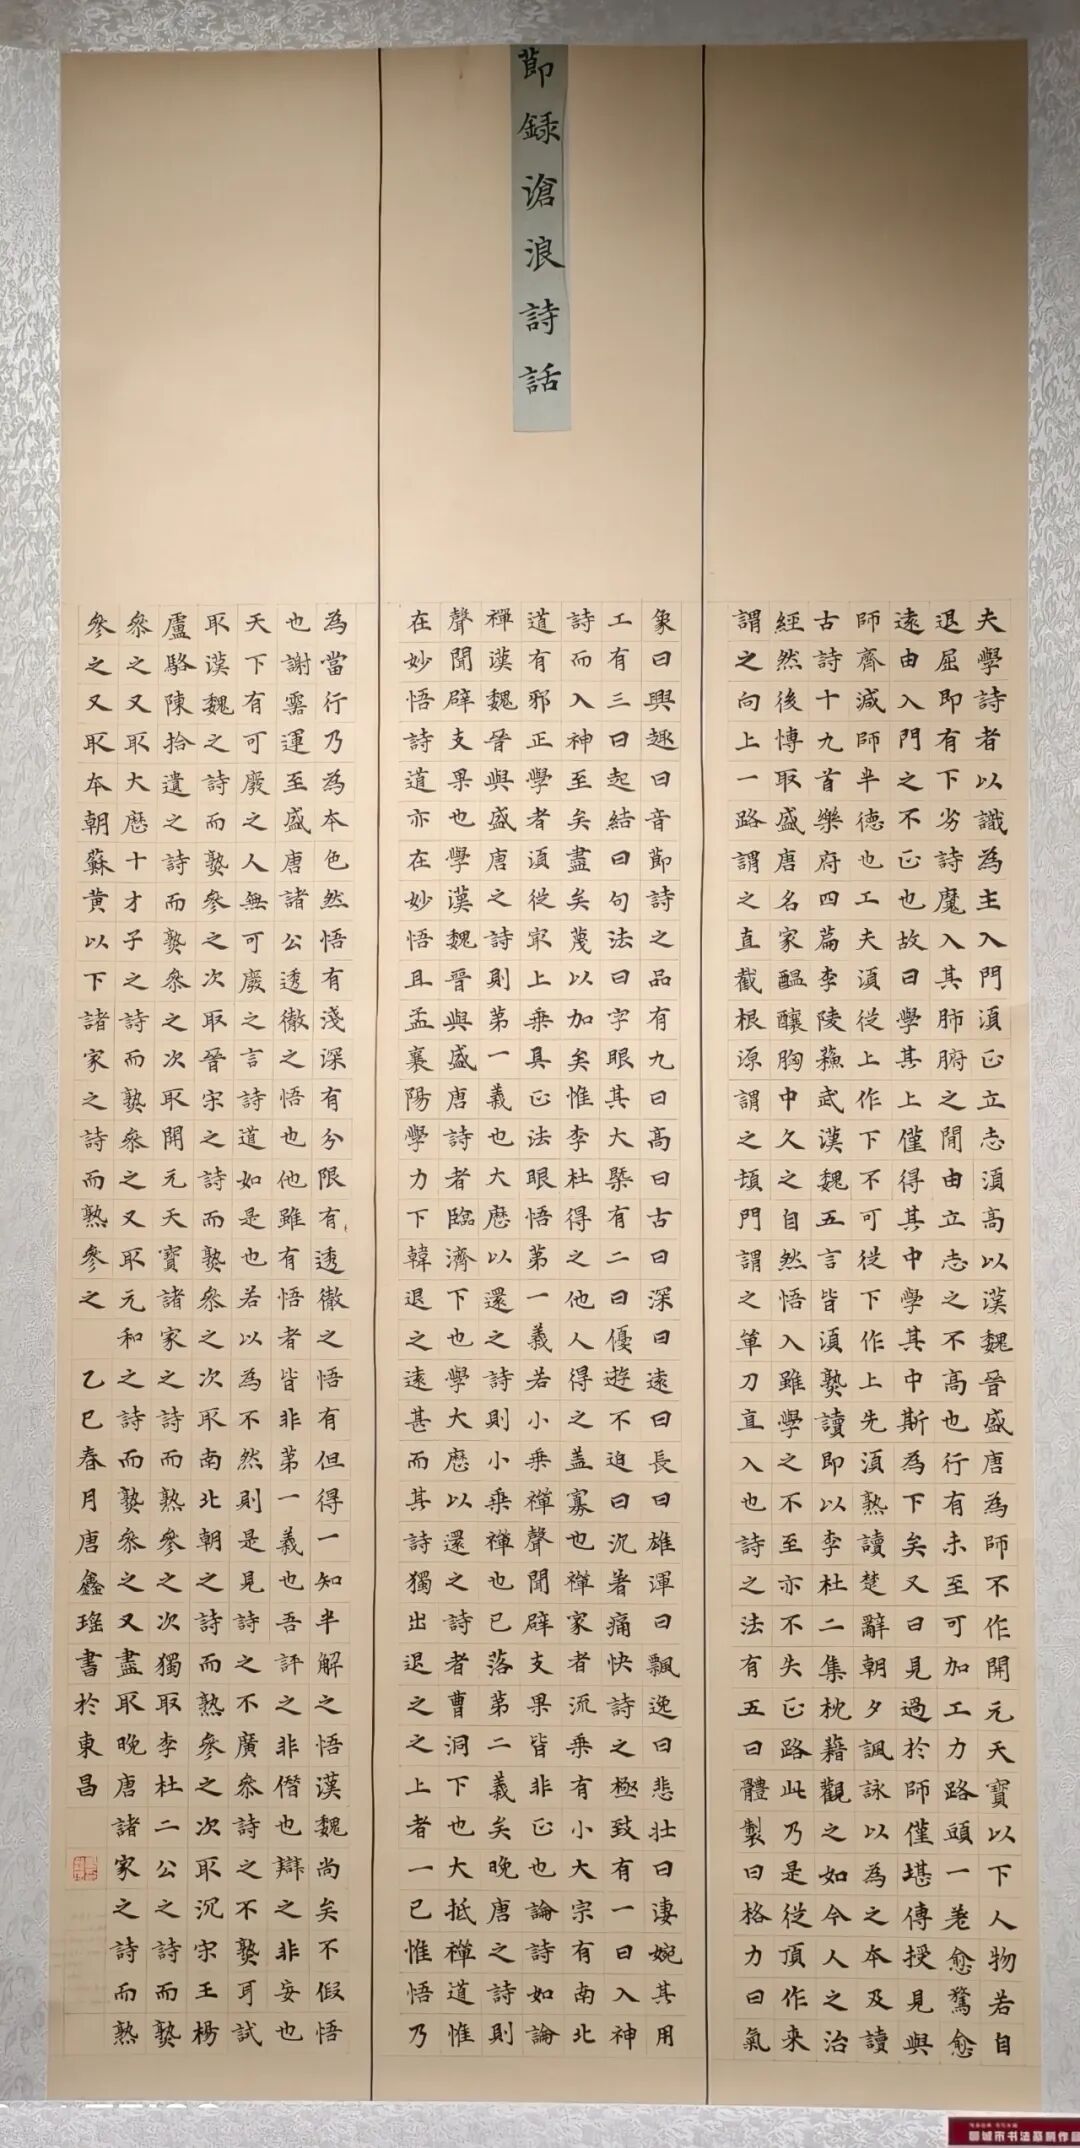 節録滄浪詩話
夫學詩者以識為主入門須正立志須高以漢魏晉盛唐為師不作開元天寶以下人物若自
退屈即有下劣詩魔入其肺腑之間由立志之不高也行有未至可加工力路頭一差愈騖愈
遠由入門之不正也故曰學其上僅得其中學其中斯為下矣又曰見過於師僅堪傳授見與
師齊減師半德也工夫須從上作下不可從下作上先須熟讀楚辭朝夕諷詠以為之本及讀
古詩十九首樂府四篇李陵蘇武漢魏五言皆須熟讀即以李杜二集枕藉觀之如今人之治
經然後博取盛唐名家醞釀胸中久之自然悟入雖學之不至亦不失正路此乃是從頂作來
謂之向上一路謂之直截根源謂之頓門謂之單刀直入也詩之法有五曰體製曰格力曰氣
象曰興趣曰音節詩之品有九曰高曰古曰深曰遠曰長曰雄渾曰飄逸曰悲壯曰淒婉其用
工有三曰起結曰句法曰字眼其大槩有二曰優遊不迫曰沉著痛快詩之極致有一曰入神
詩而入神至矣盡矣蔑以加矣惟李杜得之他人得之蓋寡也禪家者流乘有小大宗有南北
道有邪正學者須從最上乘具正法眼悟第一義若小乘禪聲聞辟支果皆非正也論詩如論
禪漢魏晉與盛唐之詩則第一義也大曆以還之詩則小乘禪也已落第二義矣晚唐之詩則
聲聞辟支果也學漢魏晉與盛唐詩者臨濟下也學大曆以還之詩者曹洞下也大抵禪道惟
在妙悟詩道亦在妙悟且孟襄陽學力下韓退之遠甚而其詩獨出退之之上者一已惟悟乃
為當行乃為本色然悟有淺深有分限有透徹之悟有但得一知半解之悟漢魏尚矣不假悟
也謝靈運至盛唐諸公透徹之悟也他雖有悟者皆非第一義也吾評之非僭也辯之非妄也
天下有可廢之人無可廢之言詩道如是也若以為不然則是見詩之不廣參詩之不熟耳試
取漢魏之詩而熟參之次取晉宋之詩而熟參之次取南北朝之詩而熟參之次取沉宋王楊
盧駱陳拾遺之詩而熟參之次取開元天寶諸家之詩而熟參之次獨取李杜二公之詩而熟
參之又取大曆十才子之詩而熟參之又取元和之詩而熟參之又盡取晚唐諸家之詩而熟
參之又取本朝蘇黃以下諸家之詩而熟參之
乙巳春月唐鑫瑤書於東昌
聊城市书法篆刻作品